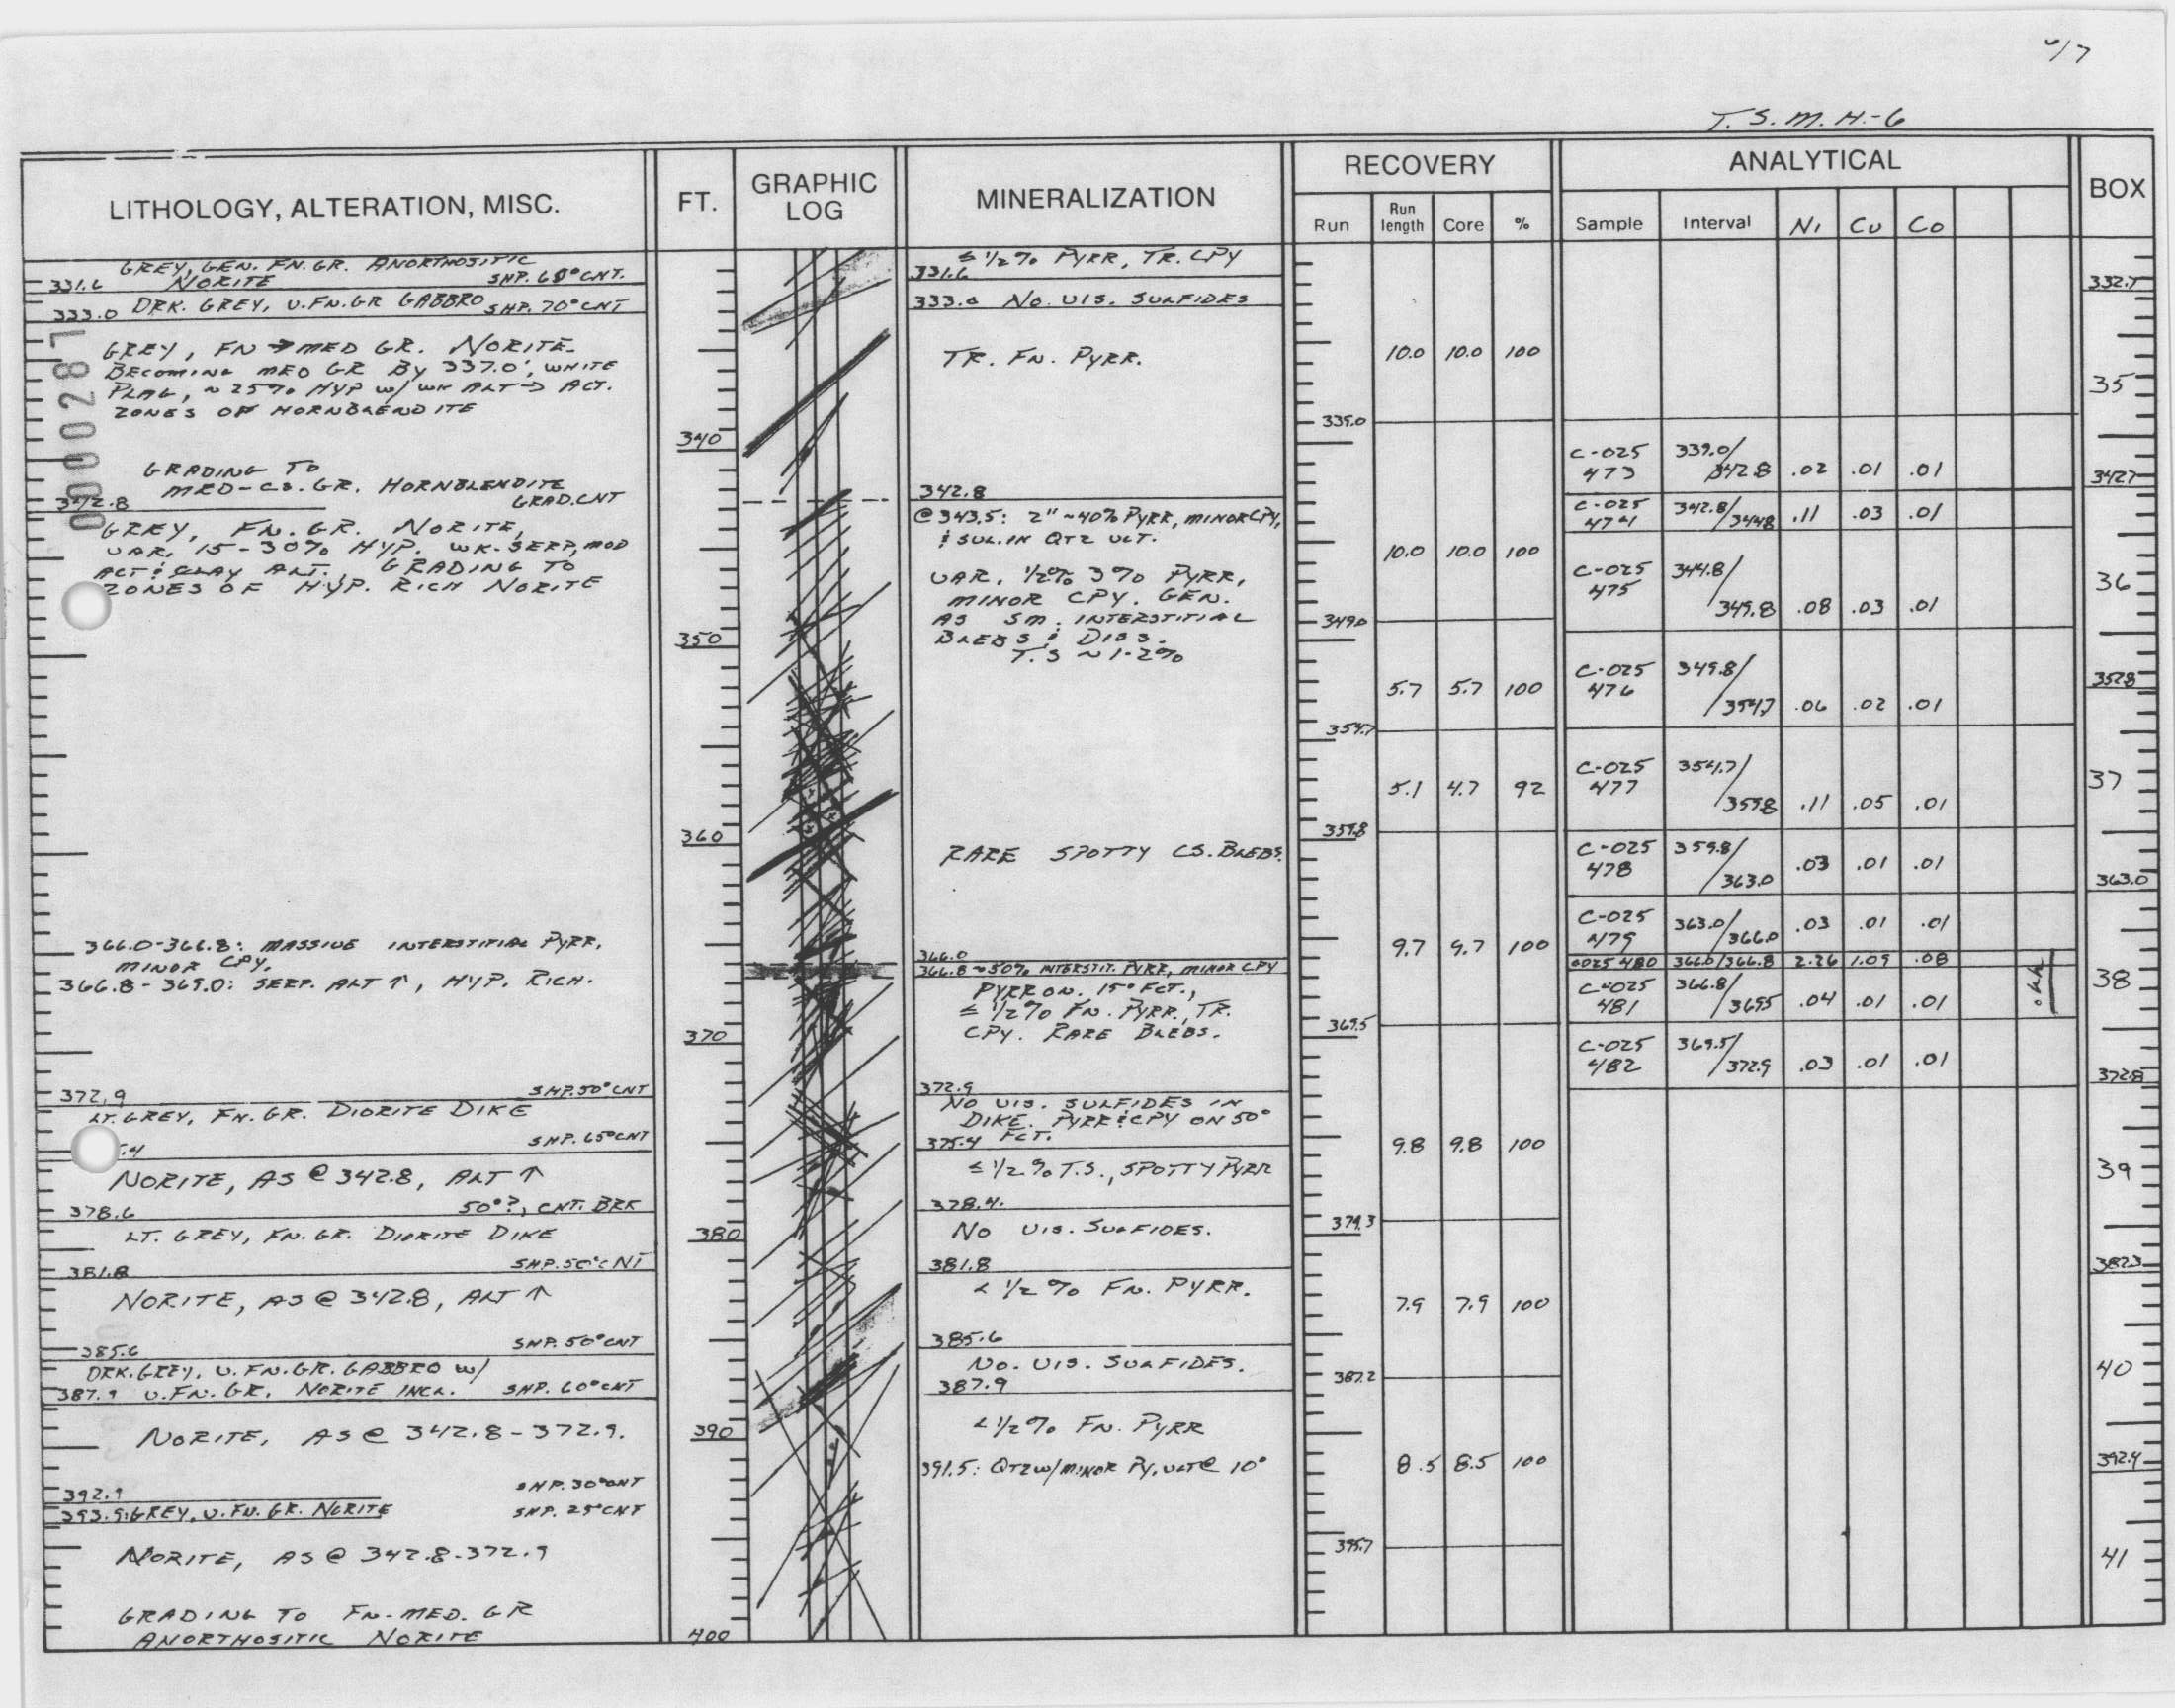 6/7
T.S.M.H.-6
LITHOLOGY, ALTERATION, MISC.
FT.
GRAPHIC
LOG
MINERALIZATION
RECOVERY
Run
Run
length
Core
%
ANALYTICAL
Sample
Interval
Ni
Cu
Co
BOX
GREY, GEN. FN. GR. ANORTHOSITIC
331.6 NORITE SHP. 60° CNT.
333.0 DRK. GREY, V.FN.GR GABBRO SHP. 70° CNT
GREY, FN → MED GR. NORITE.
BECOMING MED GR BY 337.0', WHITE
PLAG, ~25% HYP w/ WK ALT → ACT.
ZONES OF HORNBLENDITE
00000287
GRADING TO
MED-CS. GR. HORNBLENDITE
342.8 GRAD. CNT
GREY, FN. GR. NORITE,
VAR. 15-30% HYP. WK. SERP, MOD
ACT & CLAY ALT. GRADING TO
ZONES OF HYP. RICH NORITE
366.0-366.8: MASSIVE INTERSTITIAL PYRR,
MINOR CPY.
366.8-369.0: SERP. ALT ↑, HYP. RICH.
372.9 SHP. 50° CNT
LT. GREY, FN. GR. DIORITE DIKE
.4 SHP. 65° CNT
NORITE, AS @ 342.8, ALT ↑
378.6 50°?, CNT. BRK
LT. GREY, FN. GR. DIORITE DIKE
381.8 SHP. 50° CNT
NORITE, AS @ 342.8, ALT ↑
385.6 SHP. 50° CNT
DRK. GREY, V. FN. GR. GABBRO w/
387.9 V. FN. GR. NORITE INCL. SHP. 60° CNT
NORITE, AS @ 342.8-372.9.
392.9 SHP. 30° CNT
393.9: GREY, V. FN. GR. NORITE SHP. 25° CNT
NORITE, AS @ 342.8-372.9
GRADING TO FN-MED. GR
ANORTHOSITIC NORITE
340
350
360
370
380
390
400
≤ 1/2% PYRR, TR. CPY
331.6
333.0 NO. VIS. SULFIDES
TR. FN. PYRR.
342.8
@ 343.5: 2" ~40% PYRR, MINOR CPY,
& SUL. IN QTZ VLT.
VAR. 1/2% 3% PYRR,
MINOR CPY. GEN.
AS SM. INTERSTITIAL
BLEBS & DISS.
T.S ~1-2%
RARE SPOTTY CS. BLEBS.
366.0
366.8 ~50% INTERSTIT. PYRR, MINOR CPY
PYRR ON. 15° FCT.,
≤ 1/2% FN. PYRR, TR.
CPY. RARE BLEBS.
372.9
NO VIS. SULFIDES IN
DIKE. PYRR & CPY ON 50°
375.4 FCT.
≤ 1/2% T.S., SPOTTY PYRR
378.4.
NO VIS. SULFIDES.
381.8
< 1/2% FN. PYRR.
385.6
NO. VIS. SULFIDES.
387.9
< 1/2% FN. PYRR
391.5: QTZ w/ MINOR PY. VLT @ 10°
10.0 10.0 100
339.0
10.0 10.0 100
349.0
5.7 5.7 100
354.7
5.1 4.7 92
359.8
9.7 9.7 100
369.5
9.8 9.8 100
379.3
7.9 7.9 100
387.2
8.5 8.5 100
395.7
C-025 339.0/
473 342.8 .02 .01 .01
C-025 342.8/
474 344.8 .11 .03 .01
C-025 344.8/
475 349.8 .08 .03 .01
C-025 349.8/
476 /354.7 .06 .02 .01
C-025 354.7/
477 /359.8 .11 .05 .01
C-025 359.8/
478 /363.0 .03 .01 .01
C-025 363.0/
479 /366.0 .03 .01 .01
C025 480 366.0/366.8 2.26 1.09 .08
C-025 366.8/
481 /369.5 .04 .01 .01
C-025 369.5/
482 /372.9 .03 .01 .01
332.7
35
342.7
36
352.8
37
363.0
38
372.8
39
382.3
40
392.4
41